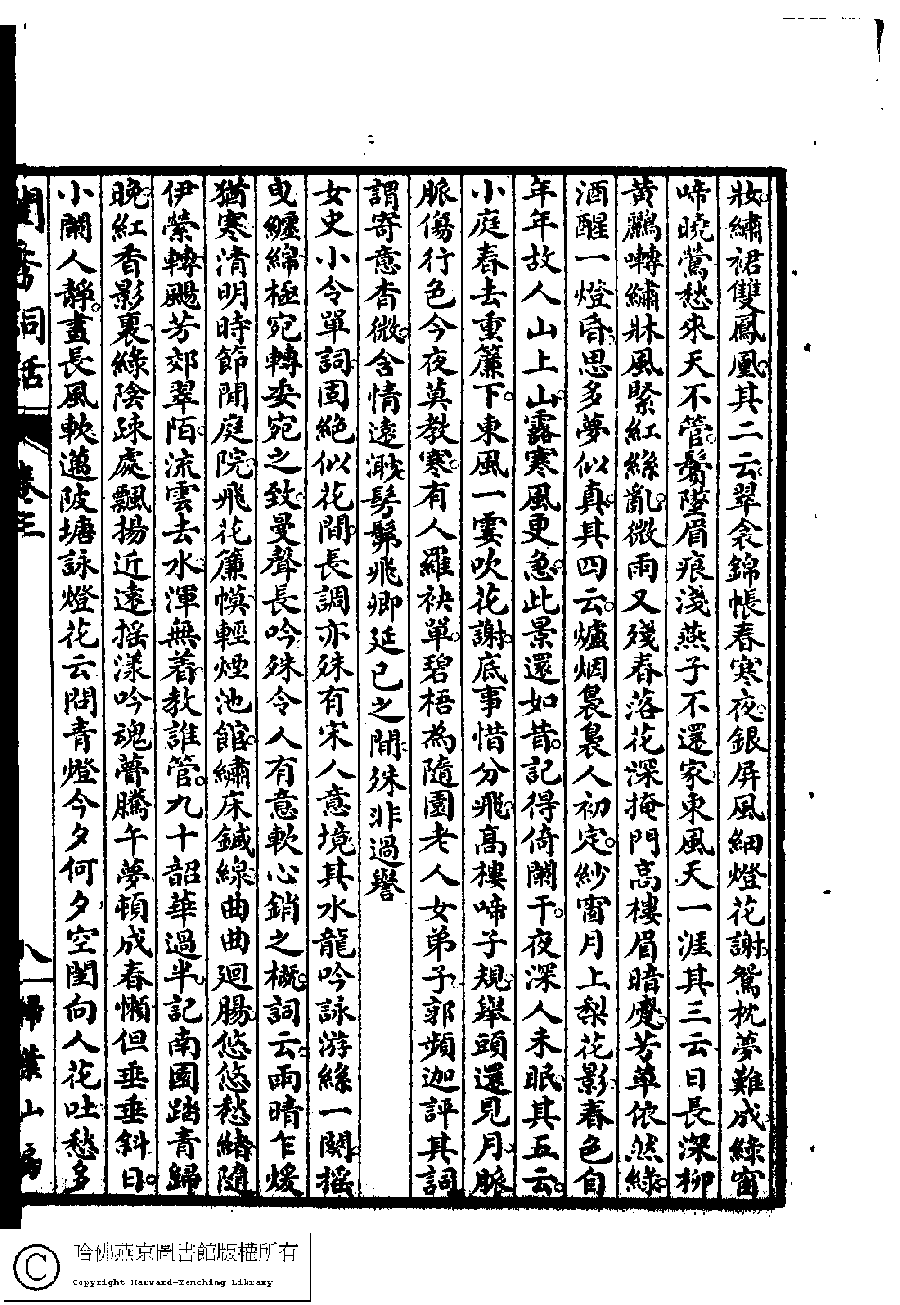 妝繡裙雙鳳凰其二云翠衾錦帳春寒夜銀屏風細燈花謝鴛枕夢難成綠窗
啼曉鶯愁來天不管鬢墮眉痕淺燕子不還家東風天一涯其三云日長深柳
黃鸝囀繡牀風緊紅絲亂微雨又殘春落花深掩門高樓眉暗蹙芳草依然綠
酒醒一燈昏思多夢似真其四云爐烟裊裊人初定紗窗月上梨花影春色自
年年故人山上山露寒風更急此景還如昔記得倚闌干夜深人未眠其五云
小庭春去重簾下東風一霎吹花謝底事惜分飛高樓啼子規舉頭還見月脈
脈傷行色今夜莫教寒有人羅袂單碧梧為隨園老人女弟子郭頻迦評其詞
謂寄意杳微含情遠渺髣髴飛卿延已之間殊非過譽
女史小令單詞固絕似花間長調亦殊有宋人意境其水龍吟詠游絲一闋搖
曳纏綿極宛轉委宛之致曼聲長吟殊令人有意軟心銷之概詞云雨晴乍煖
猶寒清明時節閒庭院飛花簾幙輕煙池館繡床鍼線曲曲廻腸悠悠愁緒隨
伊縈轉颺芳郊翠陌流雲去水渾無著教誰管九十韶華過半記南園踏青歸
晚紅香影裏綠陰疎處飄揚近遠搖漾吟魂瞢騰午夢頓成春懶但垂垂斜日
小闌人靜晝長風軟邁陂塘詠燈花云問青燈今夕何夕空閨向人花吐愁多
閨秀詞話
卷三
八
掃葉山房
哈佛燕京圖書館版權所有
Copyright Harvard-Yenching Library